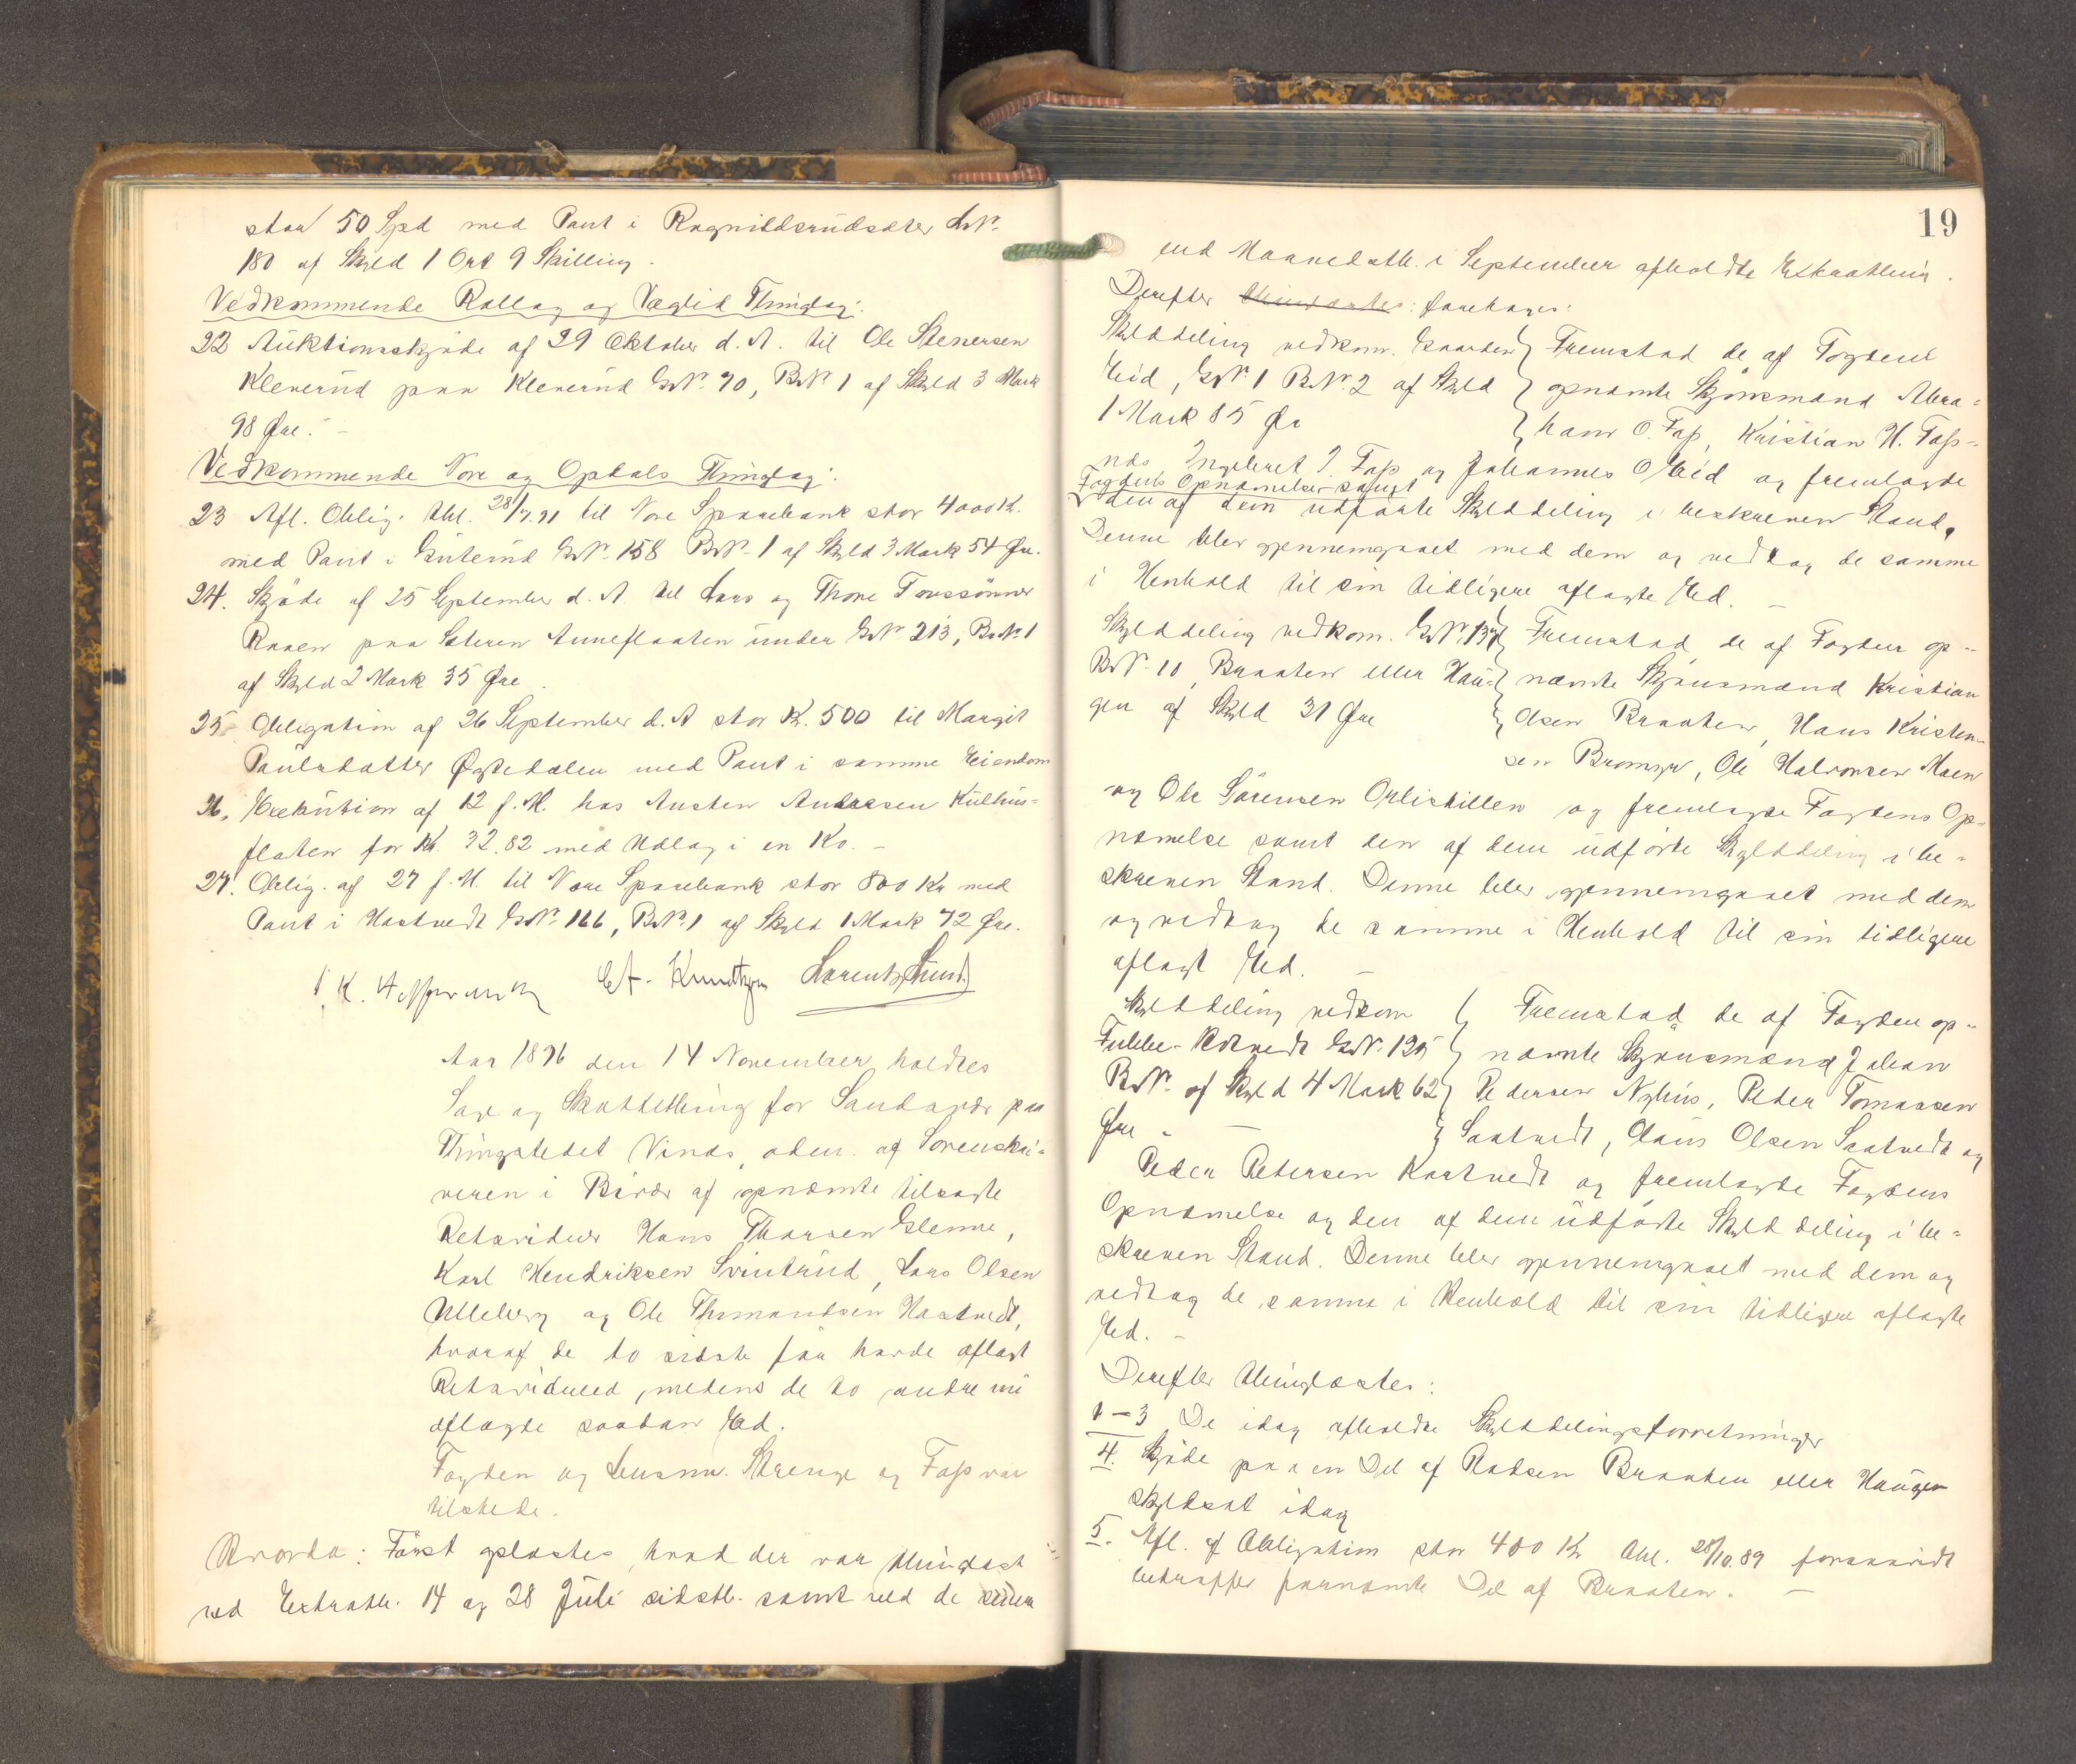 stor 50 Spd med Pant i Ragnildsrudsæter LNº
180 af Skyld 1 Ort 9 Skilling.
Vedkommende Rollag og Væglid Thinglag:
22 Auktionsskjøde af 29 Oktober d. A. til Ole Stenersen
Kleverud paa Kleverud GNº 70, BNº 1 af Skyld 3 Mark
98 Øre. -
Vedkommende Nore og Opdals Thinglag:
23 Afl. Oblig. thl. 28/7.91 til Nore Sparebank stor 4000 K.
med Pant i GNº 158 BNº 1 af Skyld 3 Mark 54 Øre.
24. Skjøde af 25 September d. A. til Lars og Thore Torssønner
Raaen paa Sæteren Anneflaaten under GNº 213, BNº 1
af Skyld 2 Mark 35 Øre.
25 Obligation af 26 September d. A stor K. 500 til Margit
Paulsdatter Øgstedalen med Pant i samme Eiendom
26. Exekution af 12 f. M. hos Austen Andersen Kulhus=
flaten for Kr. 32.82 med Udlæg i en Ko. -
27. Oblig. af 27 f. M. til Nore Sparebank stor 800 Kr med
Pant i Haatvedt GNº 166, BNº 1 af Skyld 1 Mark 72 Øre.
Knudtzon Lorentz Lund
Aar 1896 den 14 November holdtes
Sage og Skattething for Sandsvær paa
Thingstedet Vinds, adm. af Sorenskri=
veren i af opnævnte tilsagte
Retsvidner Hans Thorsen Glenne,
Karl Hendriksen Svinterud, Lars Olsen
Ulleberg og Ole Thomandsen Haatvedt,
hvoraf de to sidste før havde aflagt
Retsvidneed, medens de to andre nu
aflagde saadan Ed.
Fogden og Lensm. Strenge og Foss var
tilstede.
Hvorda: Først oplæstes hvad der var thinglæst
ved Extrath. 14 og 28 Juli sidstl. samt ved de siden
19
ved Maanedsth. i September afholdte Extrathing.
Derefter thinglæstes: foretoges:
Skylddeling vedkom. Gaarden } Fremstod de af Fogden
Eid, GNº 1 BNº 2 af Skyld } opnævnte Skjønsmænd Abra=
1 Mark 85 Øre } ham O. Foss, Kristian H. Foss-
nes Ingebret I. Foss og Johannes O Eid og fremlagde
Fogdens Opnævnelse samt
den af dem udførte Skylddeling i beskreven Stand.
Denne blev gjennemgaaet med dem og vedtog de samme
i Henhold til sin tidligere aflagte Ed. -
Skylddeling vedkom. GNº 137 } Fremstod de af Fogden op-
BNº 10, Braaten eller Hau= } nævnte Skjønsmænd Kristian
gen af Skyld 31 Øre } Olsen Braaten, Hans Kristen-
sen Bromyr, Ole Halvorsen Moen
og Ole Sørensen og fremlagde Fogdens Op=
nævnelse samt den af dem udførte Skylddeling i be=
skreven Stand. Denne blev gjennemgaaet med dem
og vedtog de samme i Henhold til sin tidligere
aflagt Ed. -
Skylddeling vedkom } Fremstod de af Fogden op-
Fulebe- GNº 125 } nævnte Skjønsmænd Johan
BNº af Skyld 4 Mark 62 } Pedersen Nyhus, Peder Tomassen
Øre - } Saatvedt, Claus Olsen Saatvedt og
Peder Petersen Kaatvedt og fremlagde Fogdens
Opnævnelse og den af dem udførte Skylddeling i be=
skreven Stand. Denne blev gjennemgaaet med dem og
vedtog de samme i Henhold til sin tidligere aflagte
Ed. -
Derefter thinglæstes:
1-3 De idag afholdte Skylddelingsforretninger
4. Skjøde paa en Del af Braaten eller Haugen
skyldsat idag
5. Afl. af Obligation stor 400 Kr thl. 28/10.89 forsaavidt
betræffer fornævnte Del af Braaten. -